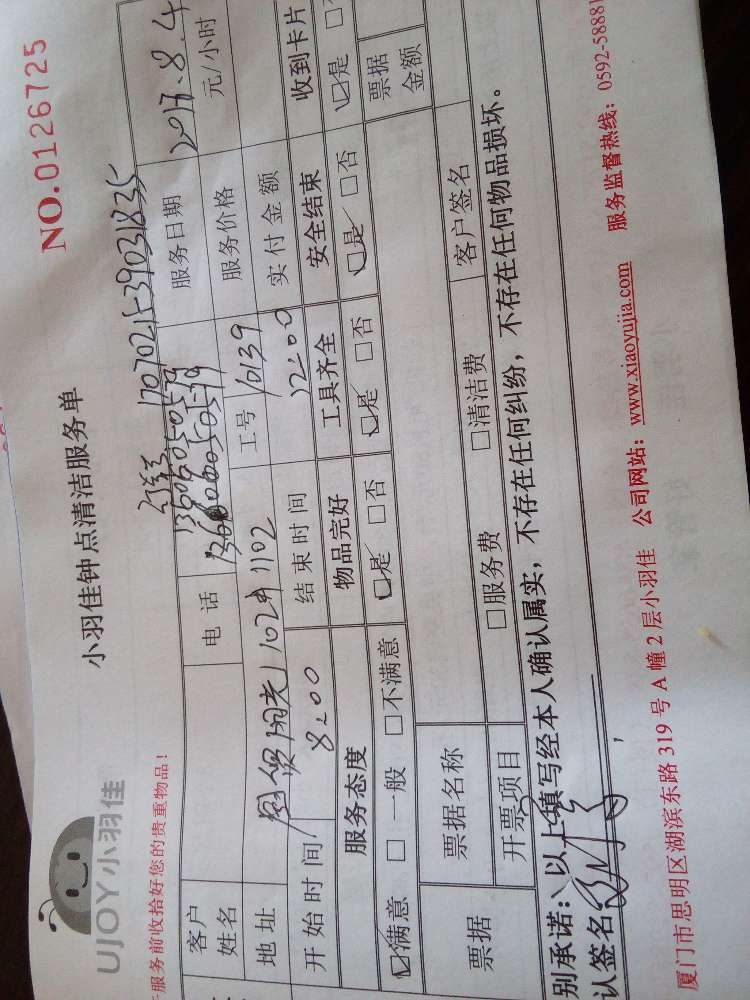 NO.0126725
UJOY小羽佳
小羽佳钟点清洁服务单
服务前收拾好您的贵重物品！
1707021539031835
13606050579
客户姓名 电话 服务日期 2017.8.4
地址 102 1102 工号 10139 服务价格 元/小时
开始时间 8:00 结束时间 12:00 实付金额
服务态度 物品完好 工具齐全 安全结束 收到卡片
☑满意 □一般 □不满意 ☑是 □否 ☑是 □否 ☑是 □否 ☑是
票据 票据名称 票据金额
开票项目 □服务费 □清洁费 客户签名
别承诺：以上填写经本人确认属实，不存在任何纠纷，不存在任何物品损坏。
认签名
厦门市思明区湖滨东路 319 号 A 幢 2 层小羽佳 公司网站：www.xiaoyujia.com 服务监督热线：0592-58881